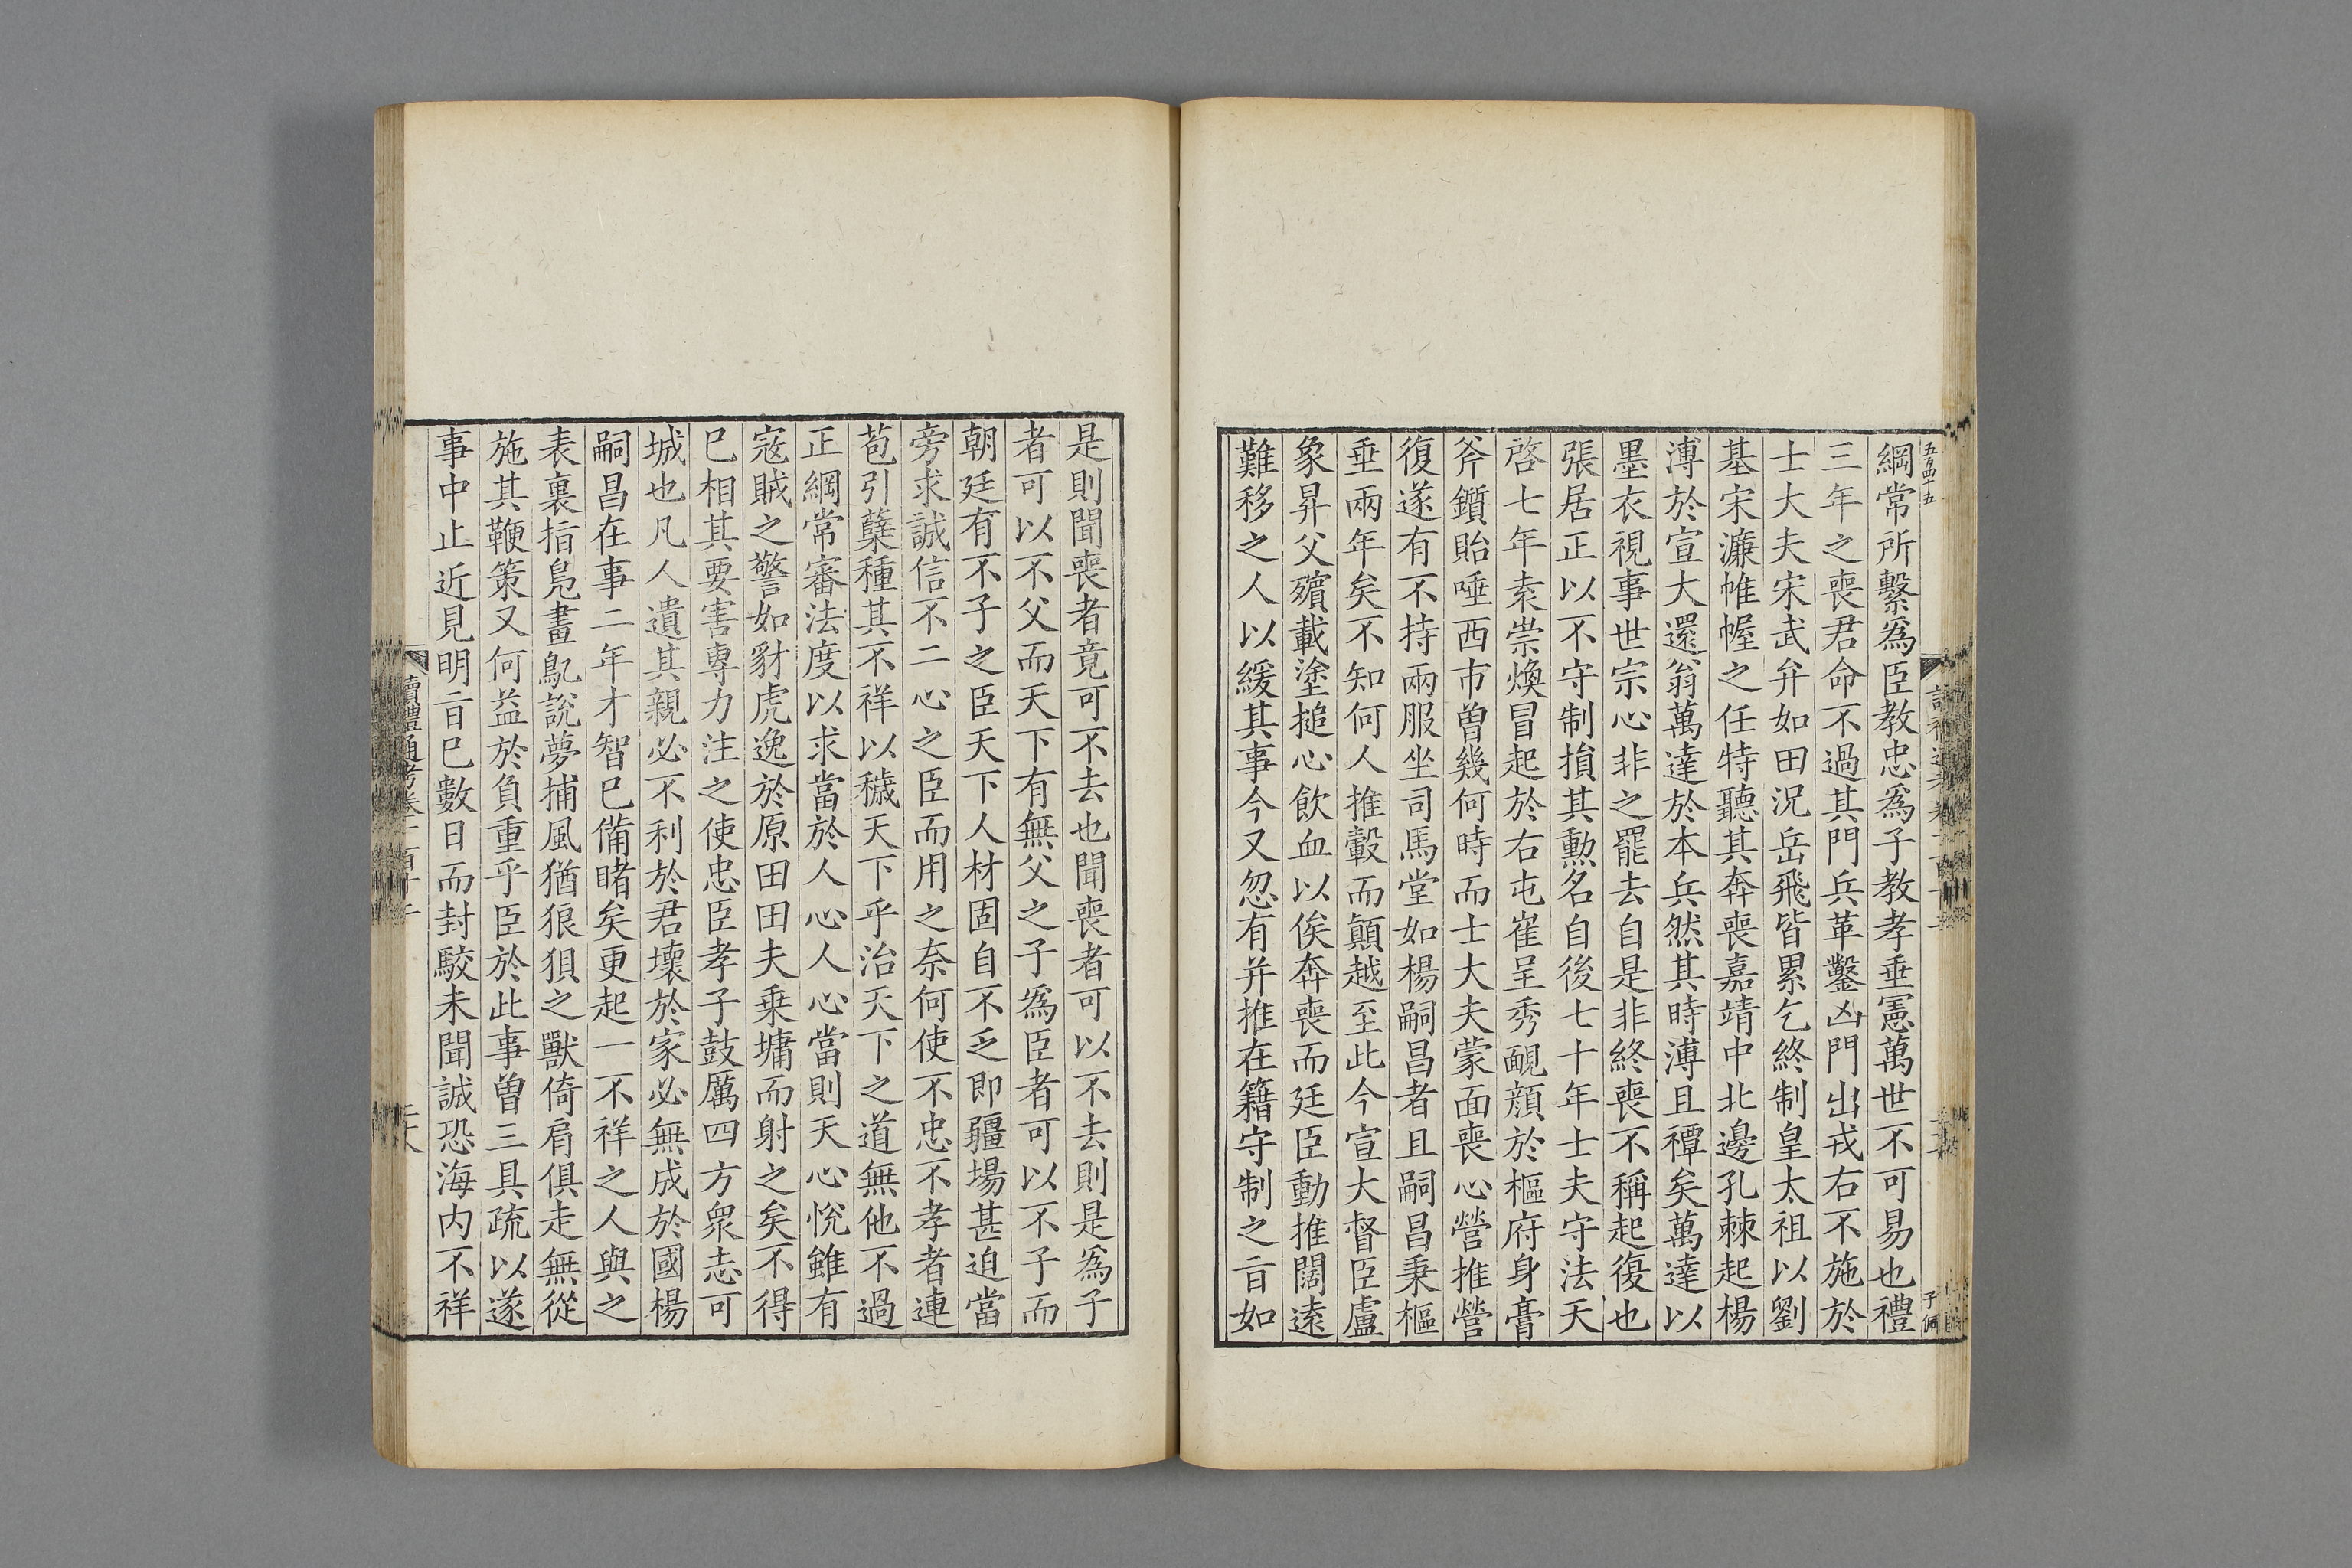 五百四十五
綱常所繫爲臣教忠爲子教孝垂憲萬世不可易也禮
三年之喪君命不過其門兵革鑿凶門出戎右不施於
士大夫宋武弁如田況岳飛皆累乞終制皇太祖以劉
基宋濂帷幄之任特聽其奔喪嘉靖中北邊孔棘起楊
溥於宣大還翁萬達於本兵然其時溥且禫矣萬達以
墨衣視事世宗心非之罷去自是非終喪不稱起復也
張居正以不守制損其勲名自後七十年士夫守法天
啓七年袁崇煥冒起於右屯崔呈秀靦顔於樞府身膏
斧鑕貽唾西市曽幾何時而士大夫蒙面喪心營推營
復遂有不持兩服坐司馬堂如楊嗣昌者且嗣昌秉樞
垂兩年矣不知何人推轂而顚越至此今宣大督臣盧
象昇父殯載塗搥心飲血以俟奔喪而廷臣動推闊遠
難移之人以緩其事今又忽有并推在籍守制之㫖如
子佩
是則聞喪者竟可不去也聞喪者可以不去則是爲子
者可以不父而天下有無父之子爲臣者可以不子而
朝廷有不子之臣天下人材固自不乏即疆場甚迫當
旁求誠信不二心之臣而用之奈何使不忠不孝者連
苞引蘖種其不祥以穢天下乎治天下之道無他不過
正綱常審法度以求當於人心人心當則天心恱雖有
寇賊之警如豺虎逸於原田田夫乗墉而射之矣不得
已相其要害專力注之使忠臣孝子鼓厲四方衆志可
城也凡人遺其親必不利於君壞於家必無成於國楊
嗣昌在事二年才智已備睹矣更起一不祥之人與之
表裏指凫畫鳦說夢捕風猶狼狽之獸倚肩俱走無從
施其鞭策又何益於負重乎臣於此事曽三具疏以遂
事中止近見明㫖巳數日而封駮未聞誠恐海内不祥
讀禮通考卷一百十